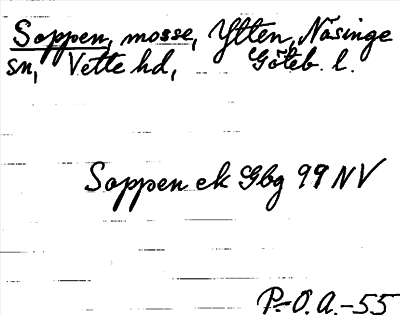 Soppen, mosse, Ytten, Näsinge
sn, Vette hd, Göteb. l.
Soppen ek Gbg 99 NV
P.-O.A.-55